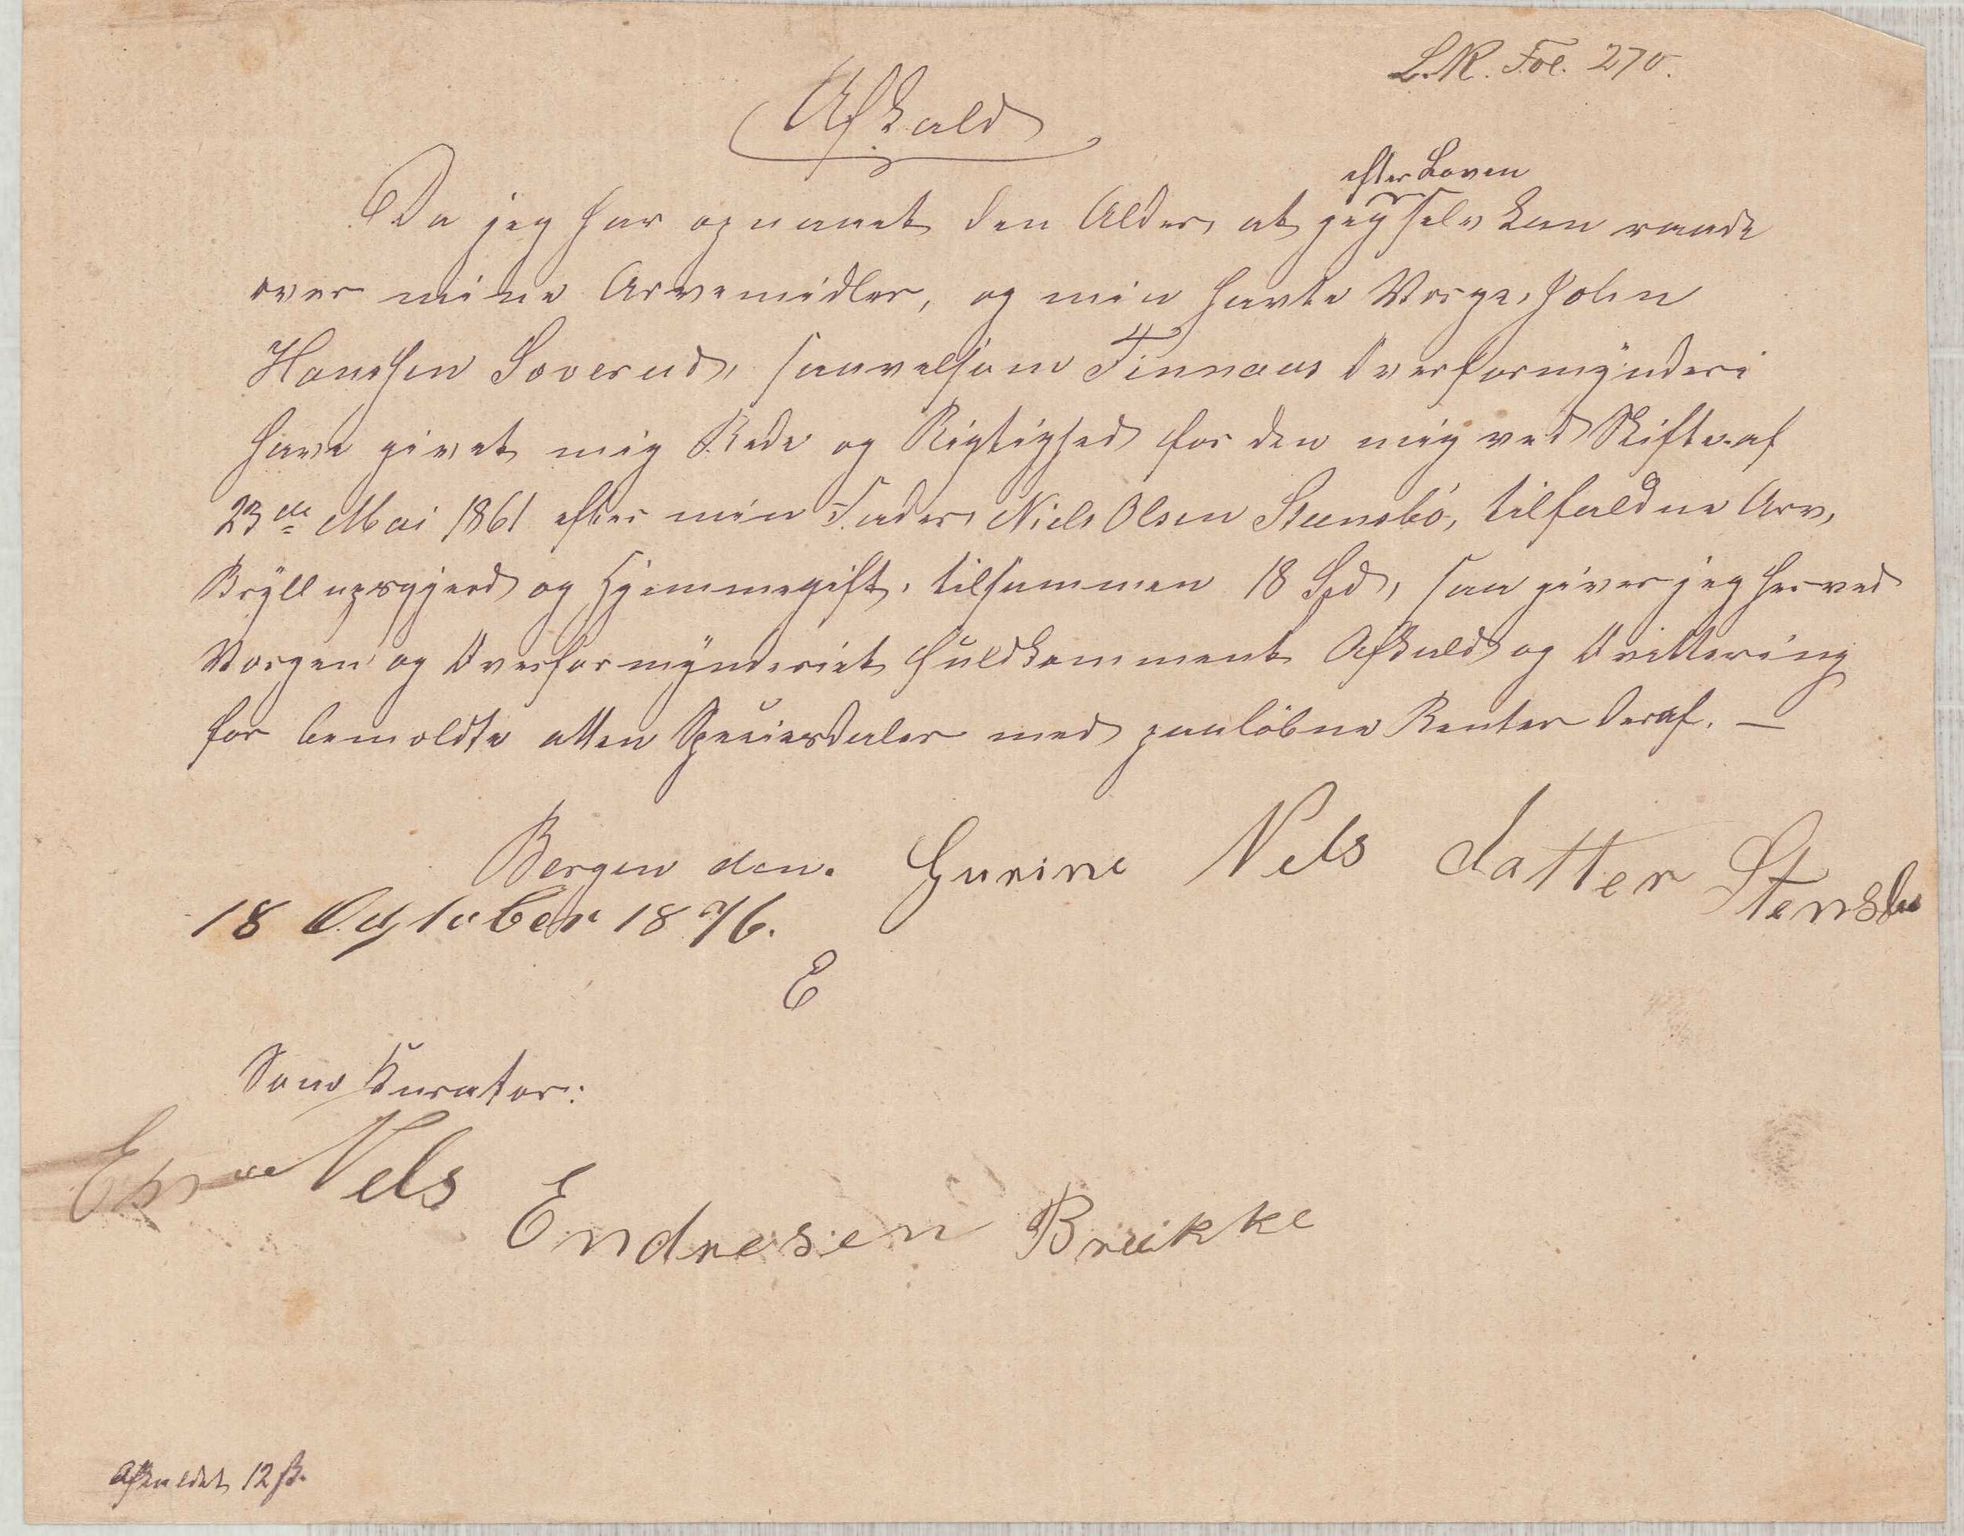 L.R. Fol. 270.
Afkald
efter Loven
Da jeg har opnaaet den Alder, at jeg selv kan raade
over mine Arvemidler, og min havte Værge, John
Hansen Soverud, saavelsom Finnaas Overformynderi
have givet mig Rede og Rigtighed for den mig ved Skifte af
23de Mai 1861 efter min Fader, Niels Olsen Steensbö, tilfaldne Arv,
Bryllupsgjerd og Hjemmegift, tilsammen 18 Spd, saa giver jeg herved
Værgen og Overformynderiet fuldkomment Afkald og Kvittering
for bemeldte atten Speciesdaler med paaløbne Renter deraf. —
Bergen den. Gurine Nels datter Stensbø
18 Ogtober 1876.
E
Som Kurator:
Nels
Endresen Brække
Afkaldet 12 ß.